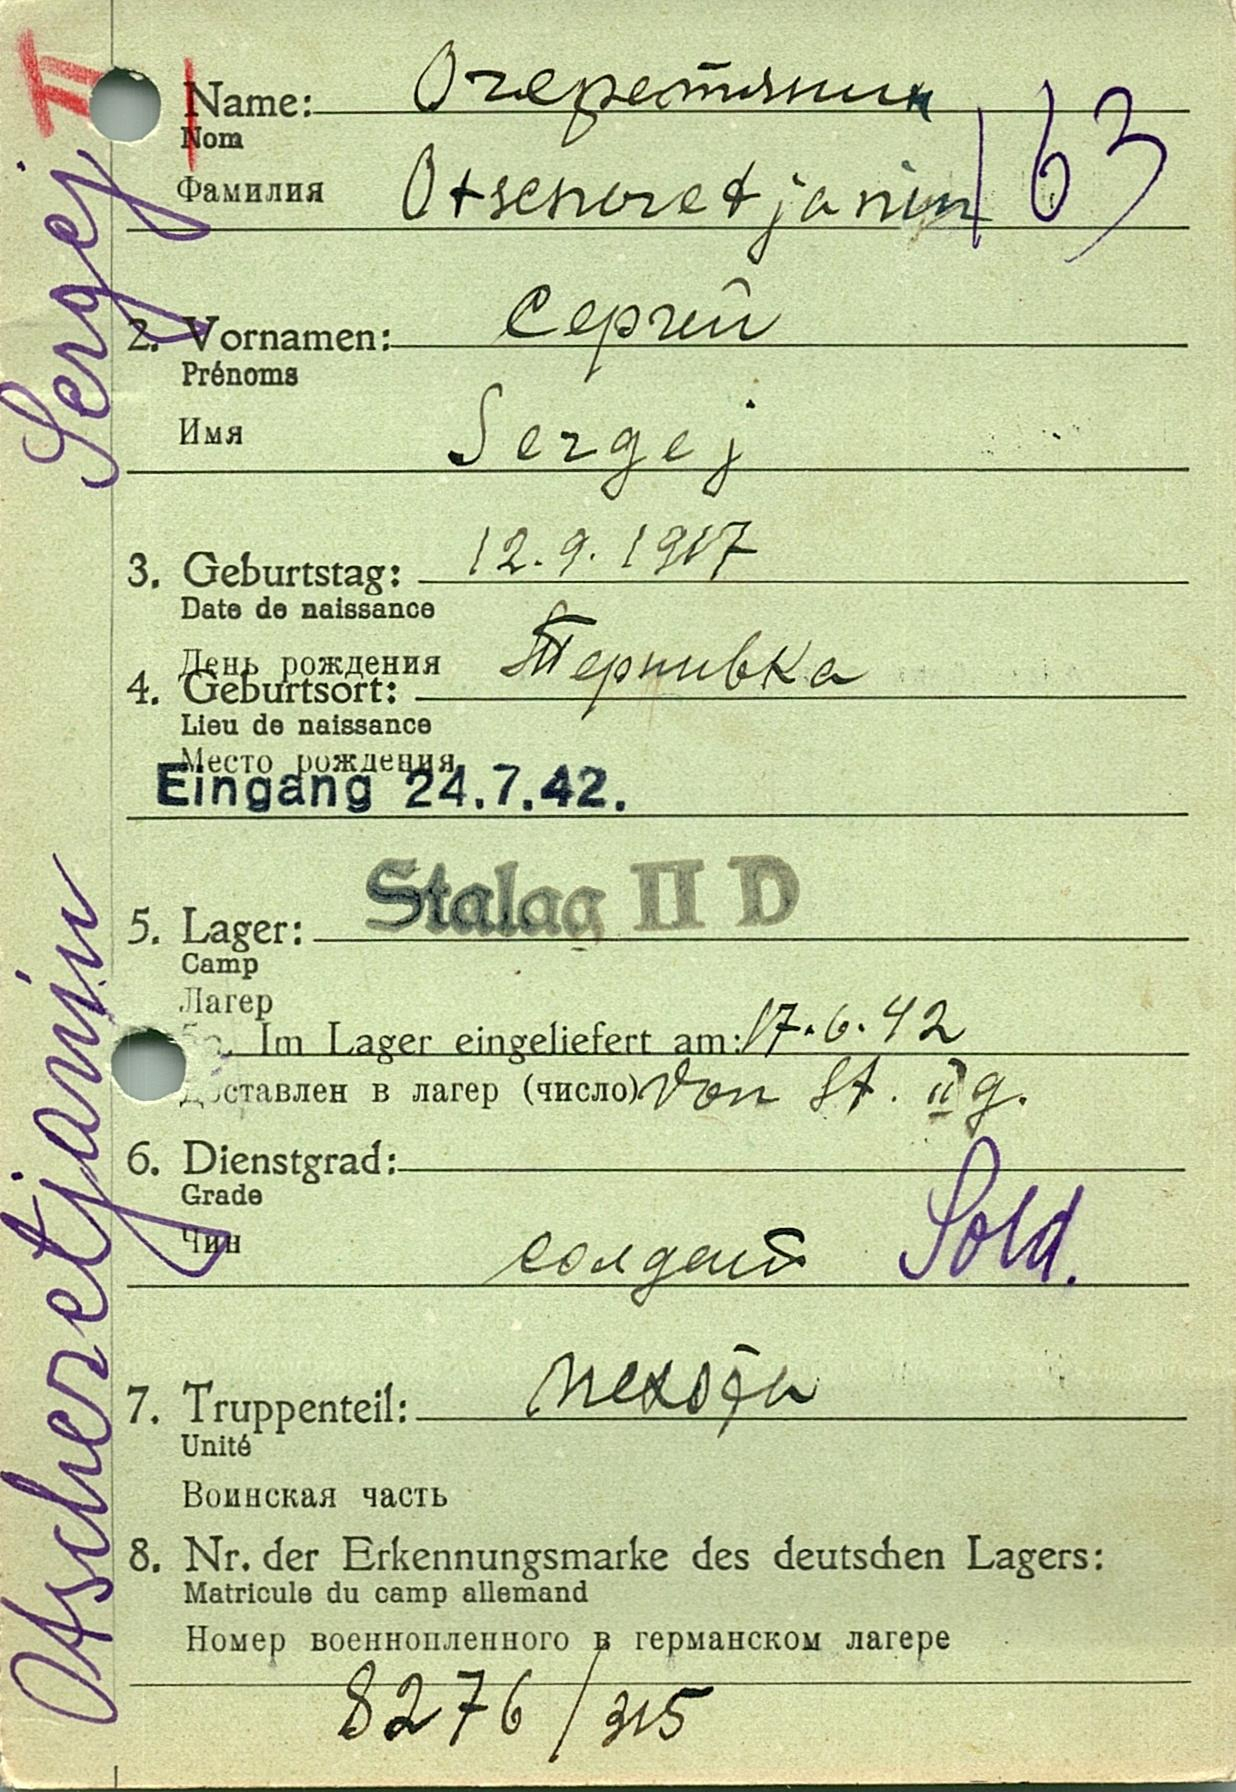 II
Name: Очеретянин
Nom
Фамилия Otscheretjanin 163
2. Vornamen: Сергей
Prénoms
Имя Sergej
3. Geburtstag: 12.9.1917
Date de naissance
День рождения
4. Geburtsort: Тернивка
Lieu de naissance
Место рождения
Eingang 24.7.42.
5. Lager: Stalag II D
Camp
Лагер
5a. Im Lager eingeliefert am: 17.6.42
Доставлен в лагер (число) von St. II g.
6. Dienstgrad:
Grade
Чин солдат Sold.
7. Truppenteil: пехота
Unité
Воинская часть
8. Nr. der Erkennungsmarke des deutschen Lagers:
Matricule du camp allemand
Номер военнопленного в германском лагере
8276/315
Otscheretjanin Sergej